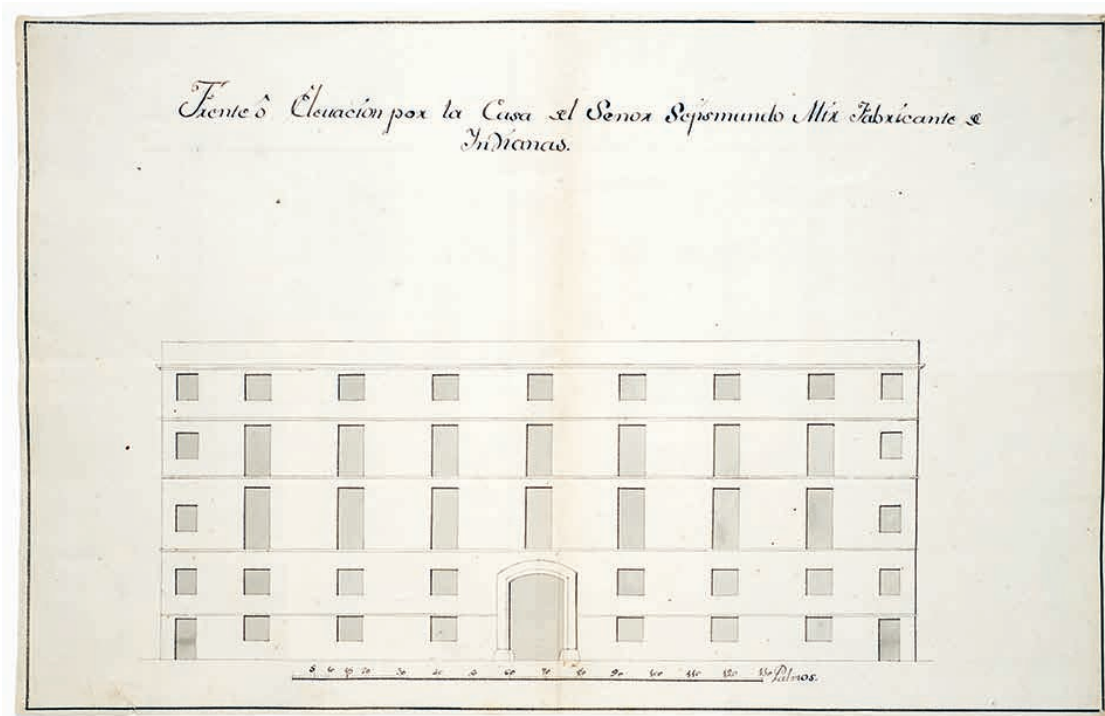 Frente ô Eleuación por la Casa del Senor Sejismundo Mir Fabricante de
Indianas.
5 15 20 30 40 50 60 70 80 90 100 110 120 130 Palmos.